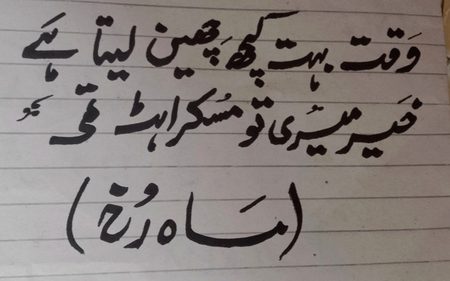 وَقت بہت کچھ چھین لیتا ہے
خیر میری تو مُسکراہٹ تھی
(مَاہ رُخ)